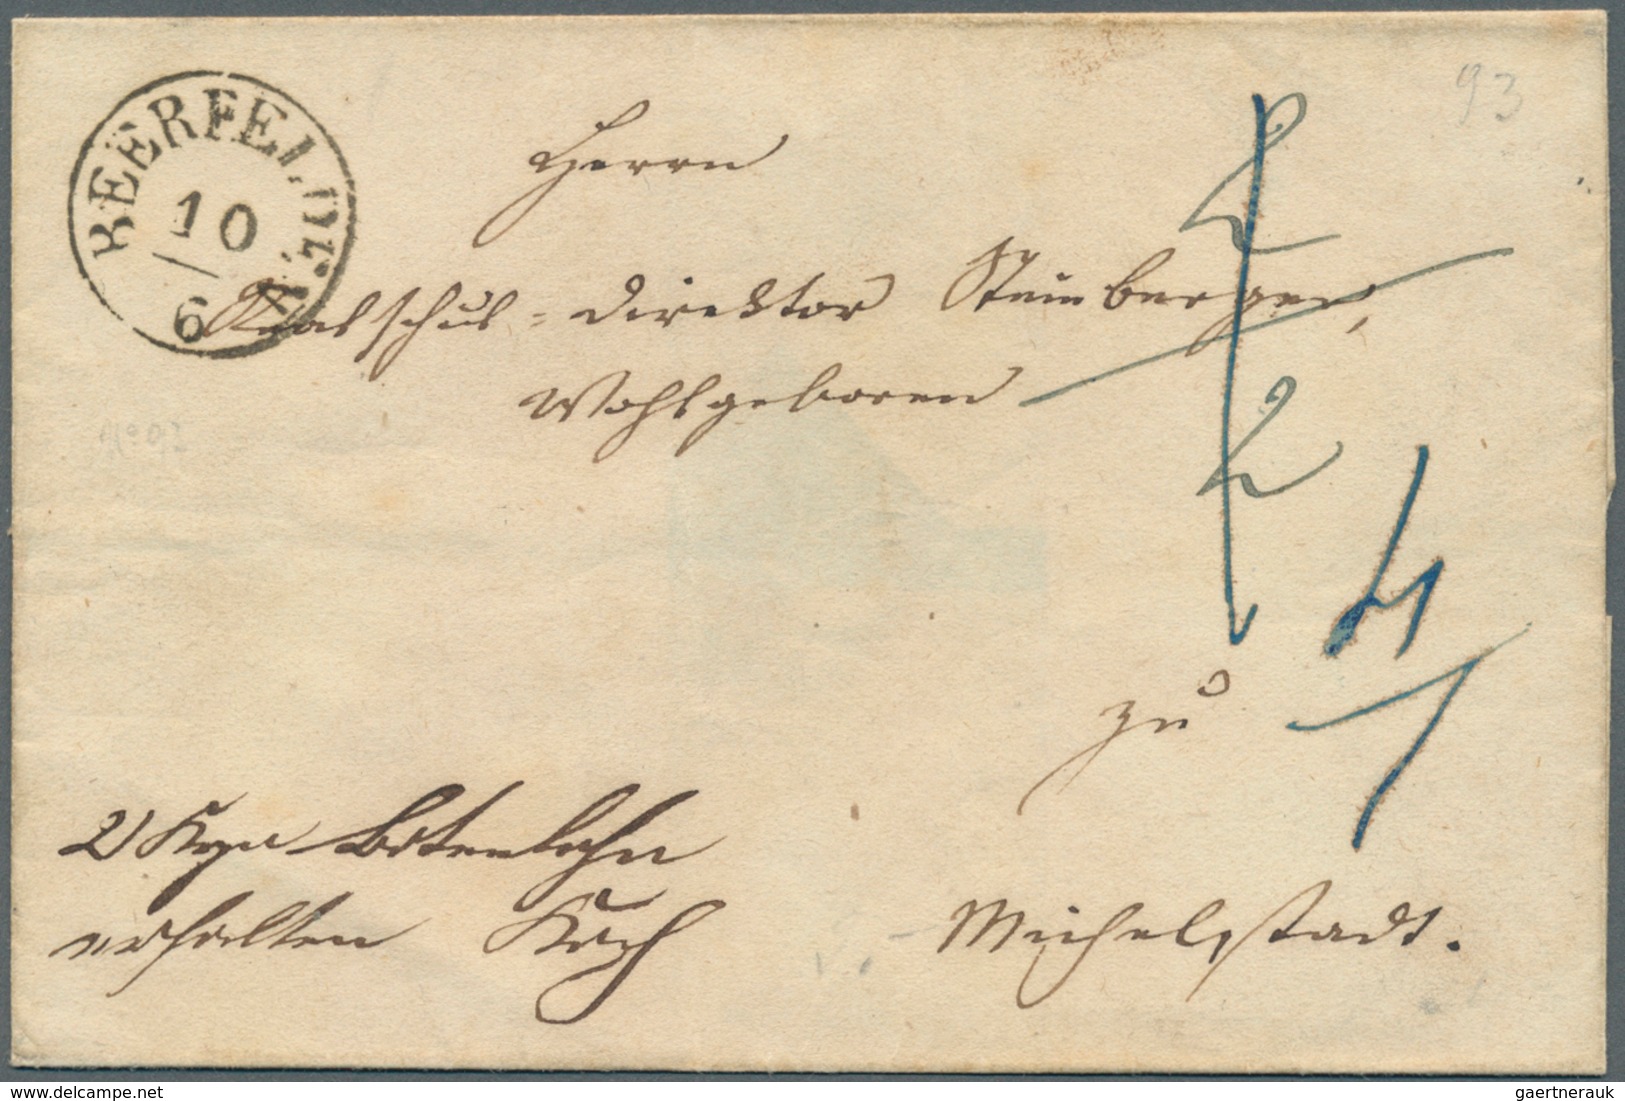 BEERFELDEN
10
6
93
Herrn
Realschul = Direktor Steinberger,
Wohlgeboren
2
2
4
1
zu
Michelstadt.
2 Botenlohn
erhalten Koch
No 93
delcampe.net
gaertnerauk